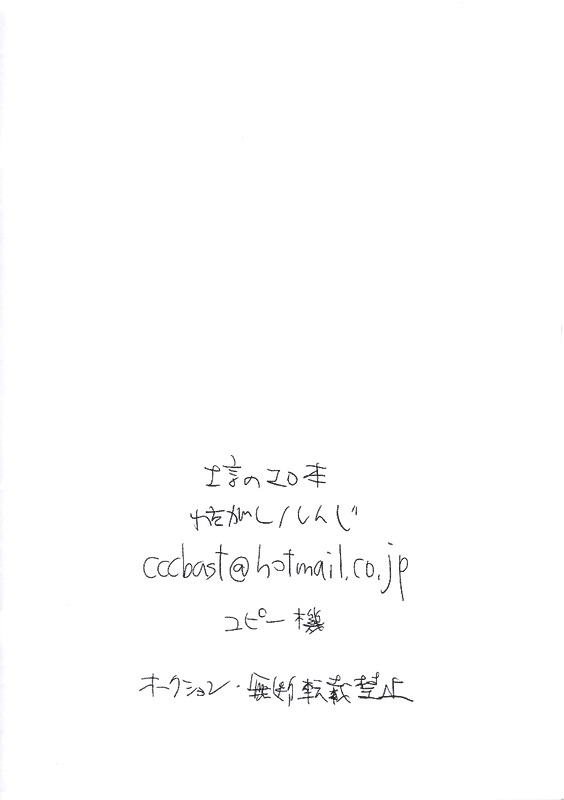 のエロ本
がし/しんじ
cccbast@hotmail.co.jp
コピー機
オークション・無断転載禁止